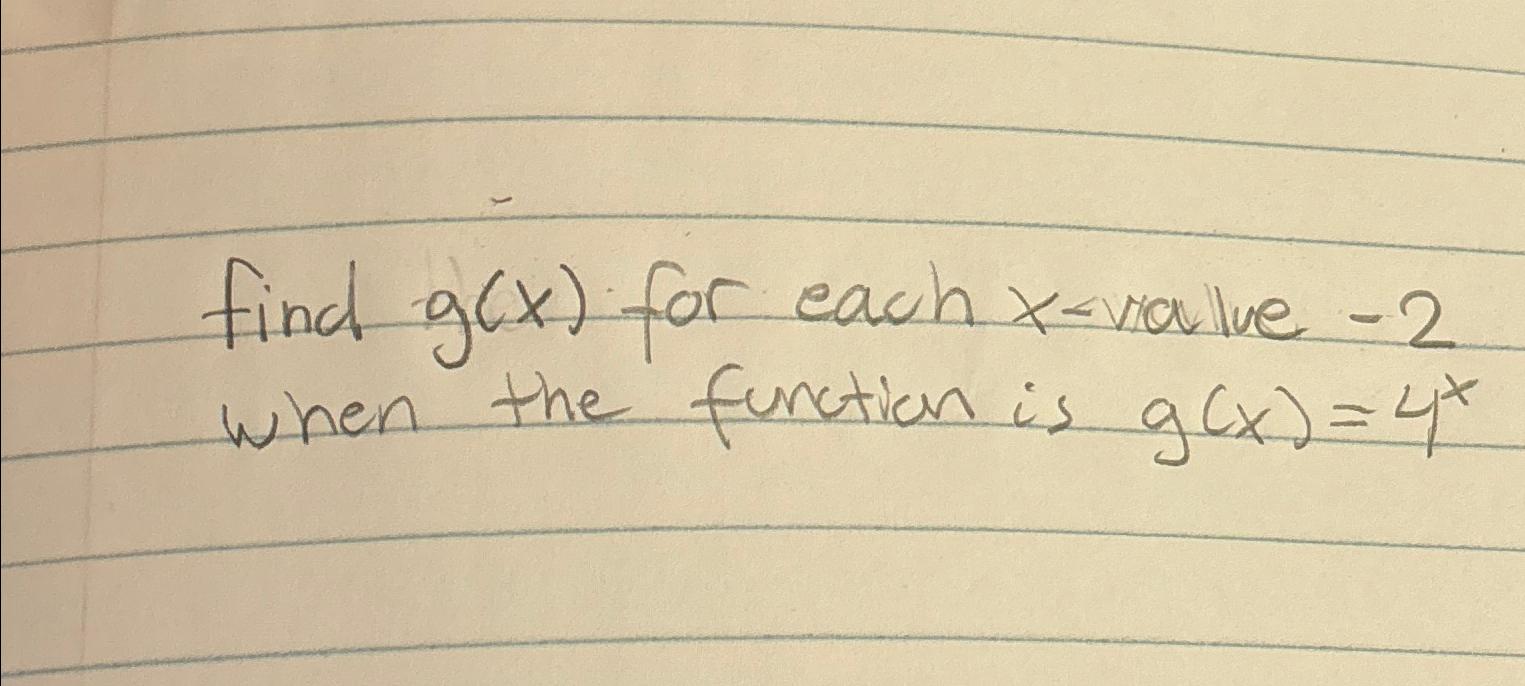 find g(x) for each x-value -2
when the function is g(x)=4^x